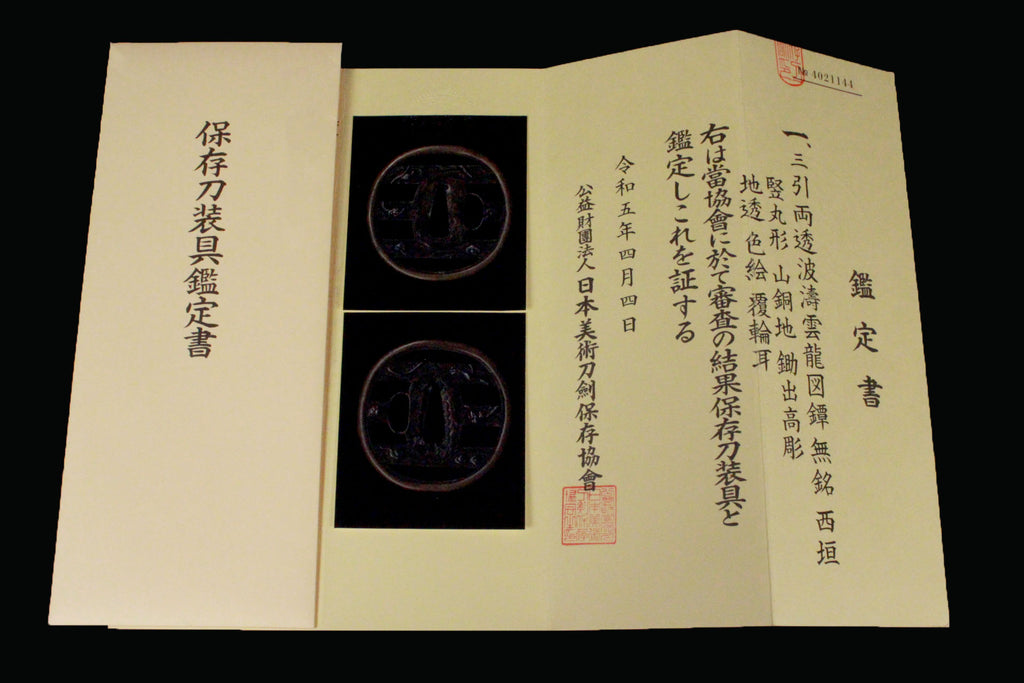 保存刀装具鑑定書
№ 4021144
鑑定書
一、三引両透波濤雲龍図鐔 無銘 西垣
竪丸形 山銅地 鋤出高彫
地透 色絵 覆輪耳
右は當協會に於て審査の結果保存刀装具と
鑑定しこれを証する
令和五年四月四日
公益財團法人 日本美術刀劍保存協會